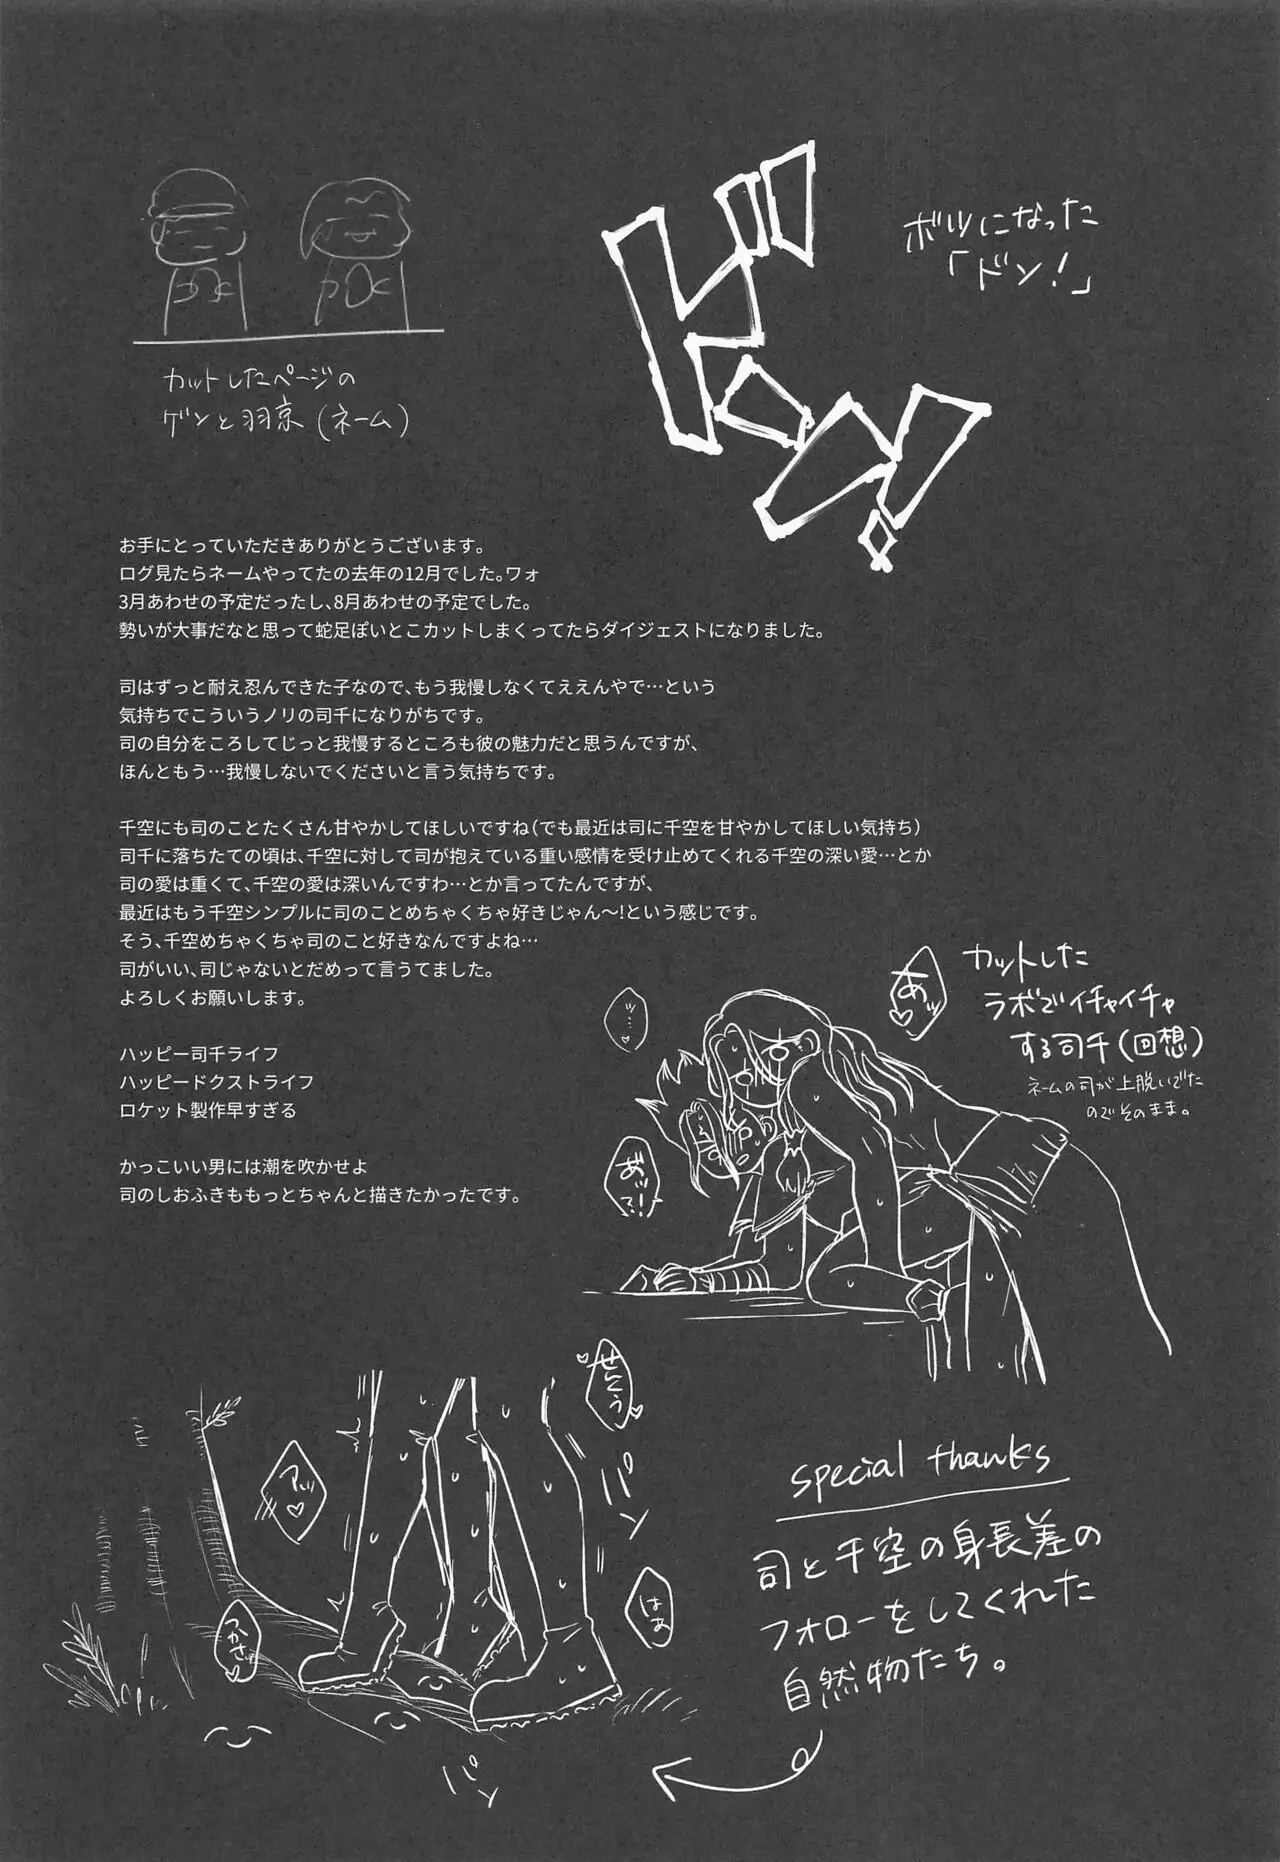 ドン!
ボツになった
「ドン!」
カットしたページの
ゲンと羽京(ネーム)
お手にとっていただきありがとうございます。
ログ見たらネームやってたの去年の12月でした。ワォ
3月あわせの予定だったし、8月あわせの予定でした。
勢いが大事だなと思って蛇足ぽいとこカットしまくってたらダイジェストになりました。
司はずっと耐え忍んできた子なので、もう我慢しなくてええんやで…という
気持ちでこういうノリの司千になりがちです。
司の自分をころしてじっと我慢するところも彼の魅力だと思うんですが、
ほんともう…我慢しないでくださいと言う気持ちです。
千空にも司のことたくさん甘やかしてほしいですね(でも最近は司に千空を甘やかしてほしい気持ち)
司千に落ちたての頃は、千空に対して司が抱えている重い感情を受け止めてくれる千空の深い愛…とか
司の愛は重くて、千空の愛は深いんですわ…とか言ってたんですが、
最近はもう千空シンプルに司のことめちゃくちゃ好きじゃん〜!という感じです。
そう、千空めちゃくちゃ司のこと好きなんですよね…
司がいい、司じゃないとだめって言うてました。
よろしくお願いします。
ハッピー司千ライフ
ハッピードクストライフ
ロケット製作早すぎる
かっこいい男には潮を吹かせよ
司のしおふきももっとちゃんと描きたかったです。
カットした
ラボでイチャイチャ
する司千(回想)
ネームの司が上脱いでた
のでそのまま。
あッ♡
ッ…♡
あ゛ッて!
せんくう
パン
アッ♡
はあ
つかさ♡
パン
special thanks
司と千空の身長差の
フォローをしてくれた
自然物たち。